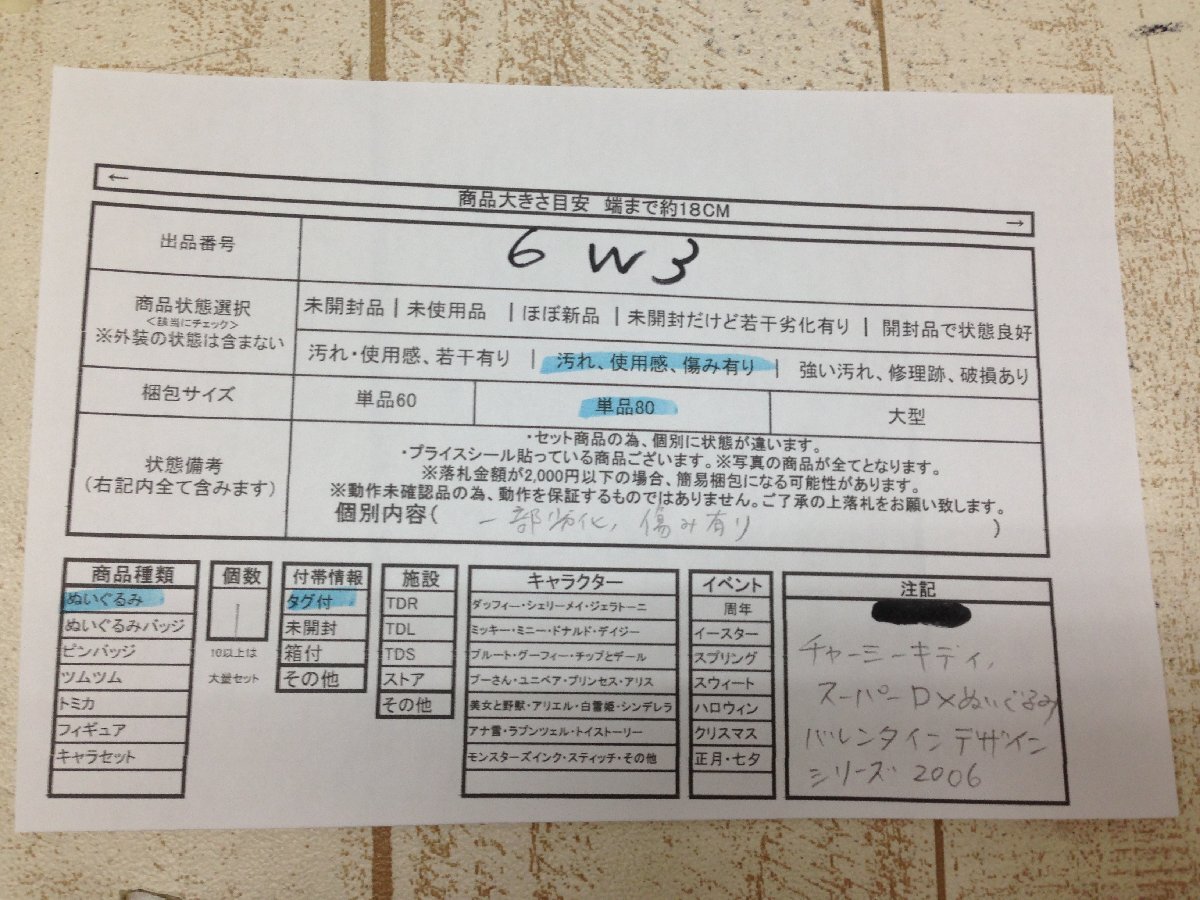 ←
商品大きさ目安 端まで約18CM
→
出品番号
6 W 3
商品状態選択
<該当にチェック>
※外装の状態は含まない
未開封品 | 未使用品 | ほぼ新品 | 未開封だけど若干劣化有り | 開封品で状態良好
汚れ・使用感、若干有り | 汚れ、使用感、傷み有り | 強い汚れ、修理跡、破損あり
梱包サイズ
単品60 単品80 大型
状態備考
(右記内全て含みます)
・セット商品の為、個別に状態が違います。
・プライスシール貼っている商品ございます。※写真の商品が全てとなります。
※落札金額が2,000円以下の場合、簡易梱包になる可能性があります。
※動作未確認品の為、動作を保証するものではありません。ご了承の上落札をお願い致します。
個別内容( 一部劣化、傷み有り )
商品種類
ぬいぐるみ
ぬいぐるみバッジ
ピンバッジ
ツムツム
トミカ
フィギュア
キャラセット
個数
1
10以上は
大量セット
付帯情報
タグ付
未開封
箱付
その他
施設
TDR
TDL
TDS
ストア
その他
キャラクター
ダッフィー・シェリーメイ・ジェラトーニ
ミッキー・ミニー・ドナルド・デイジー
プルート・グーフィー・チップとデール
プーさん・ユニベア・プリンセス・アリス
美女と野獣・アリエル・白雪姫・シンデレラ
アナ雪・ラプンツェル・トイストーリー
モンスターズインク・スティッチ・その他
イベント
周年
イースター
スプリング
スウィート
ハロウィン
クリスマス
正月・七夕
注記
チャーミーキティ、
スーパーDXぬいぐるみ
バレンタインデザイン
シリーズ 2006